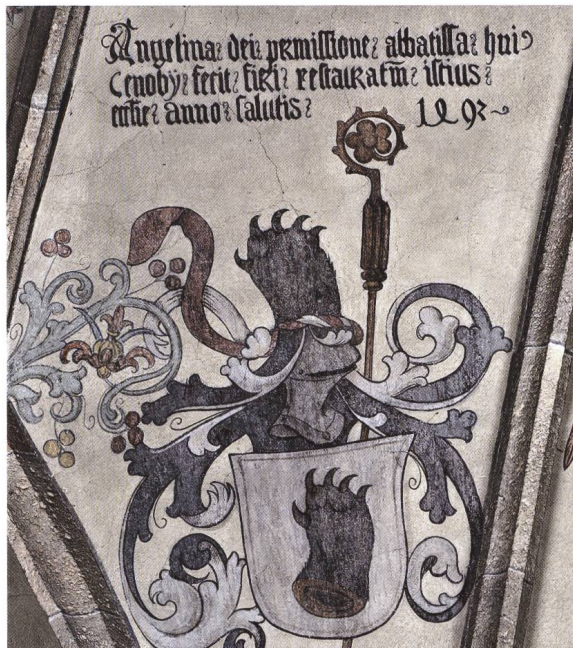 Angelina: dei: permissione: abbatissa: huiꝰ
Cenoby: fecit: fieri: restauratm̄: istius:
eccƚie: anno: salutis: 1492